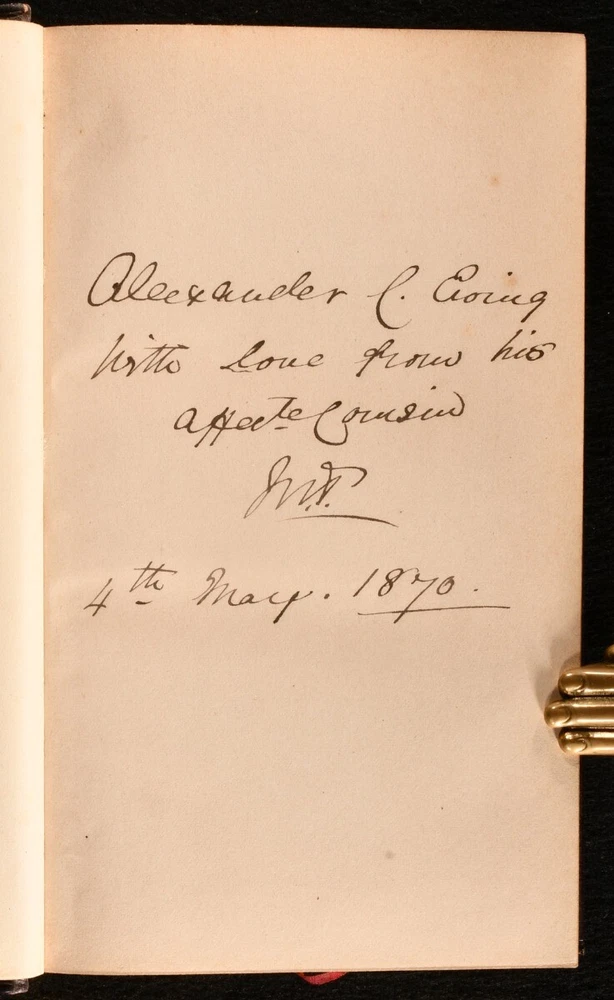 Alexander C. Ewing
With love from his
affecte Cousin
4th May. 1870.